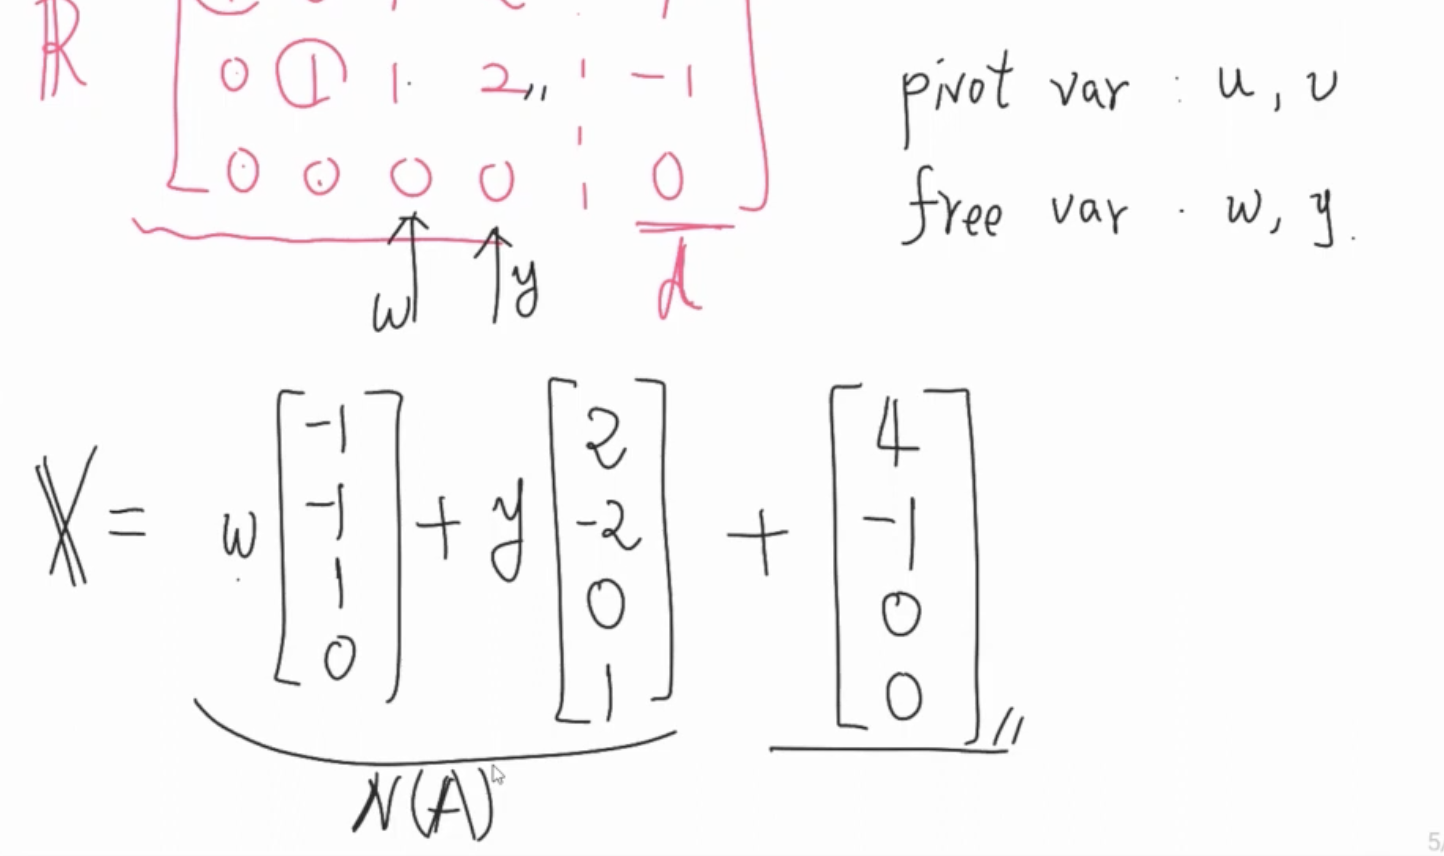 R
0 1 1 2 -1
0 0 0 0 0
pivot var : u, v
free var . w, y.
w y d
X = w [-1 -1 1 0] + y [2 -2 0 1] + [4 -1 0 0]
N(A)
5/